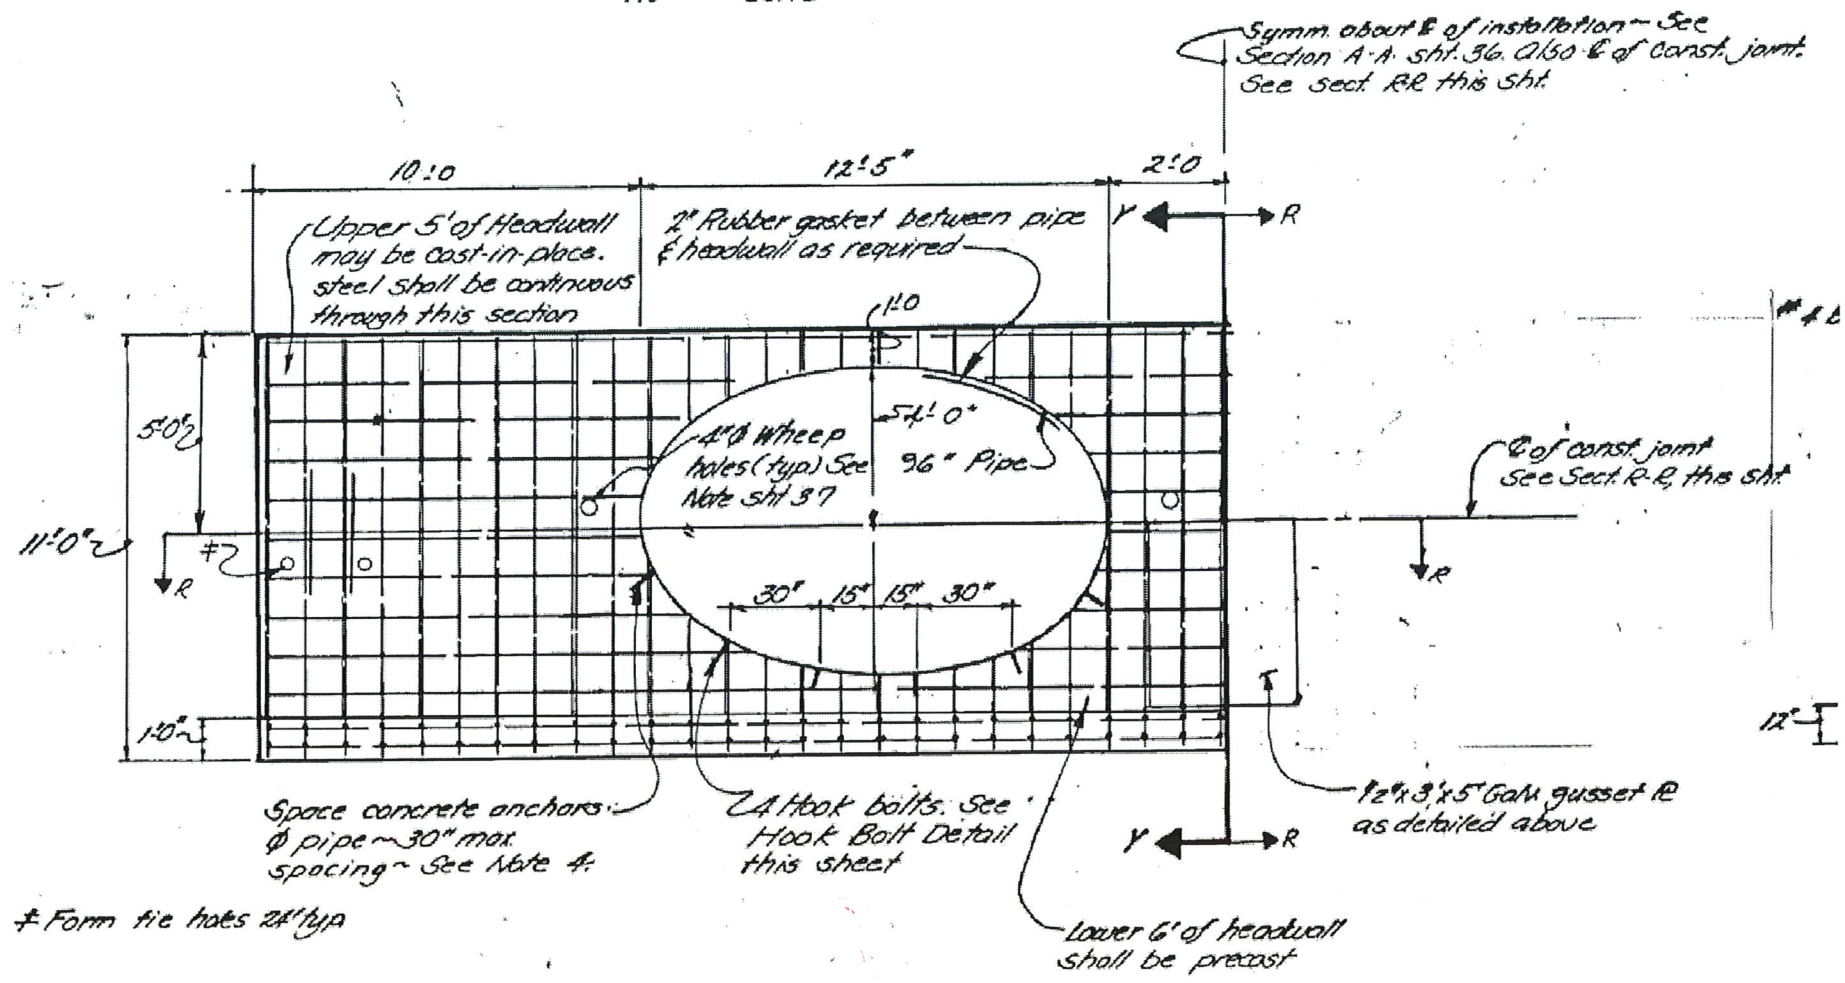 Symm. about ℄ of installation~ See
Section A-A. sht. 36. Also ℄ of Const. joint.
See sect. R-R this sht.
10'-0
12'-5"
2'-0
Upper 5' of Headwall
may be cast-in-place.
steel shall be continuous
through this section
2" Rubber gasket between pipe
& headwall as required
Y
R
1'-0
# 4
5'-0"
4'-0"
4"ϕ Wheep
holes (typ.) See
Note sht 37
96" Pipe
℄ of const. joint
See Sect. R-R, this sht
11'-0"
R
R
30"
15"
15"
30"
1'-0"
12"
Space concrete anchors
ϕ pipe ~ 30" max.
spacing ~ See Note 4.
4 Hook bolts. See
Hook Bolt Detail
this sheet
1/2"x3'x5' Galv. gusset ℞
as detailed above
Y
R
‡ Form tie holes 24" typ
Lower 6' of headwall
shall be precast